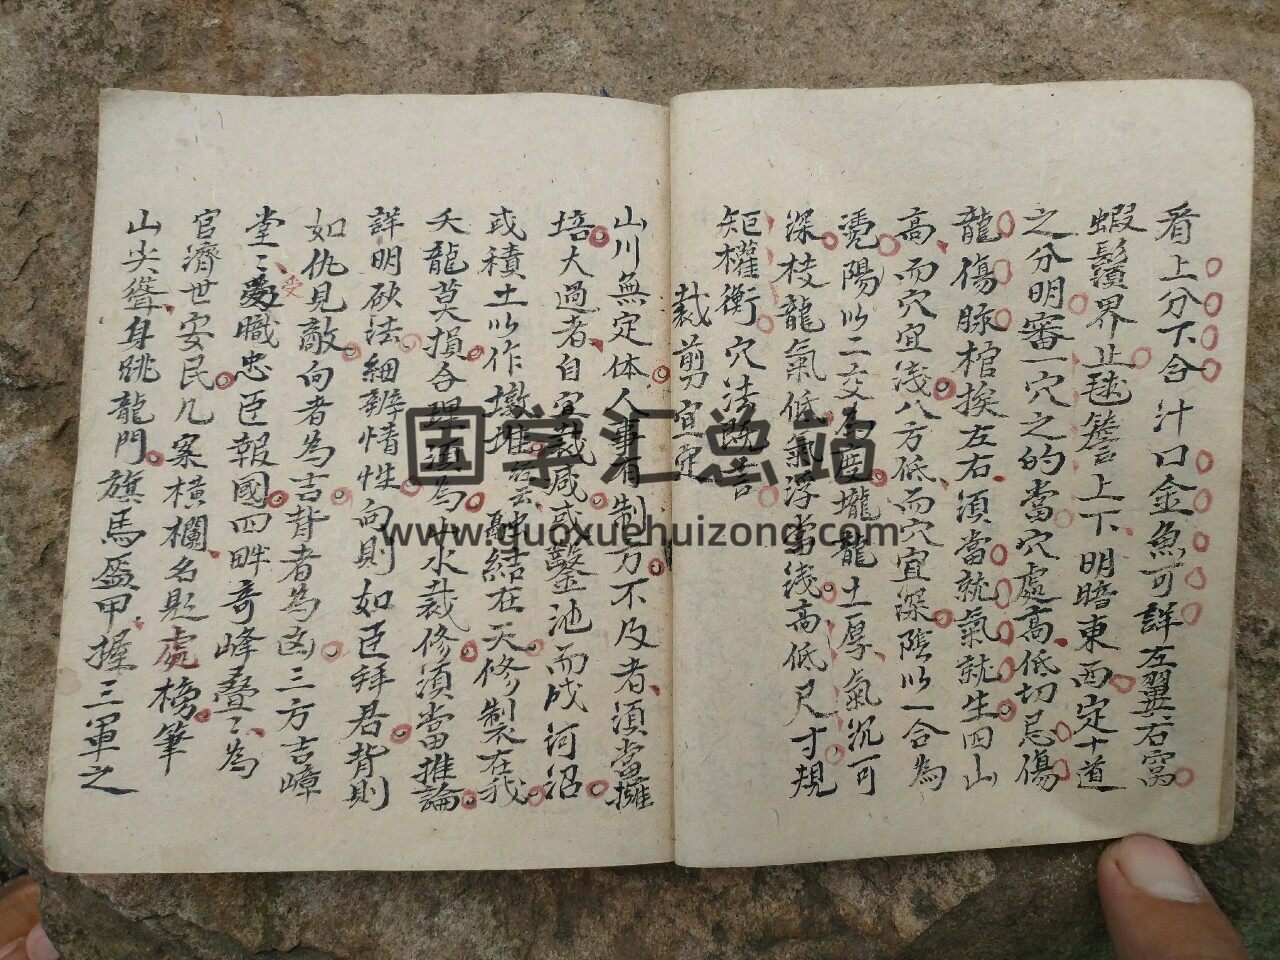 看上分下合汁口金魚可詳左翼右窩
蝦鬚界止毬簷上下明暗東西定十道
之分明審一穴之的當穴處高低切忌傷
龍傷脉棺挨左右須當就氣就生四山
高而穴宜淺八方低而穴宜深陰以一合為
憑陽以二交為度壠龍土厚氣沉可
深枝龍氣低氣浮當淺高低尺寸規
矩權衡穴法
裁剪宜定
山川無定体人事有制方不及者須當擁
培大過者自宜裁减或鑿池而成河沼
或積土以作墩堆融結在天修製在我
夭龍莫損合理須為山水裁修須當推論
詳明砍法細辨情性向則如臣拜君背則
如仇見敵向者為吉背者為凶三方吉嶂
堂〻愛受職忠臣報國四畔奇峰疊〻為
官濟世安民几案橫欄名彪處榜筆
山尖聳身跳龍門旗馬盔甲握三軍之
国学汇总站
www.guoxuehuizong.com